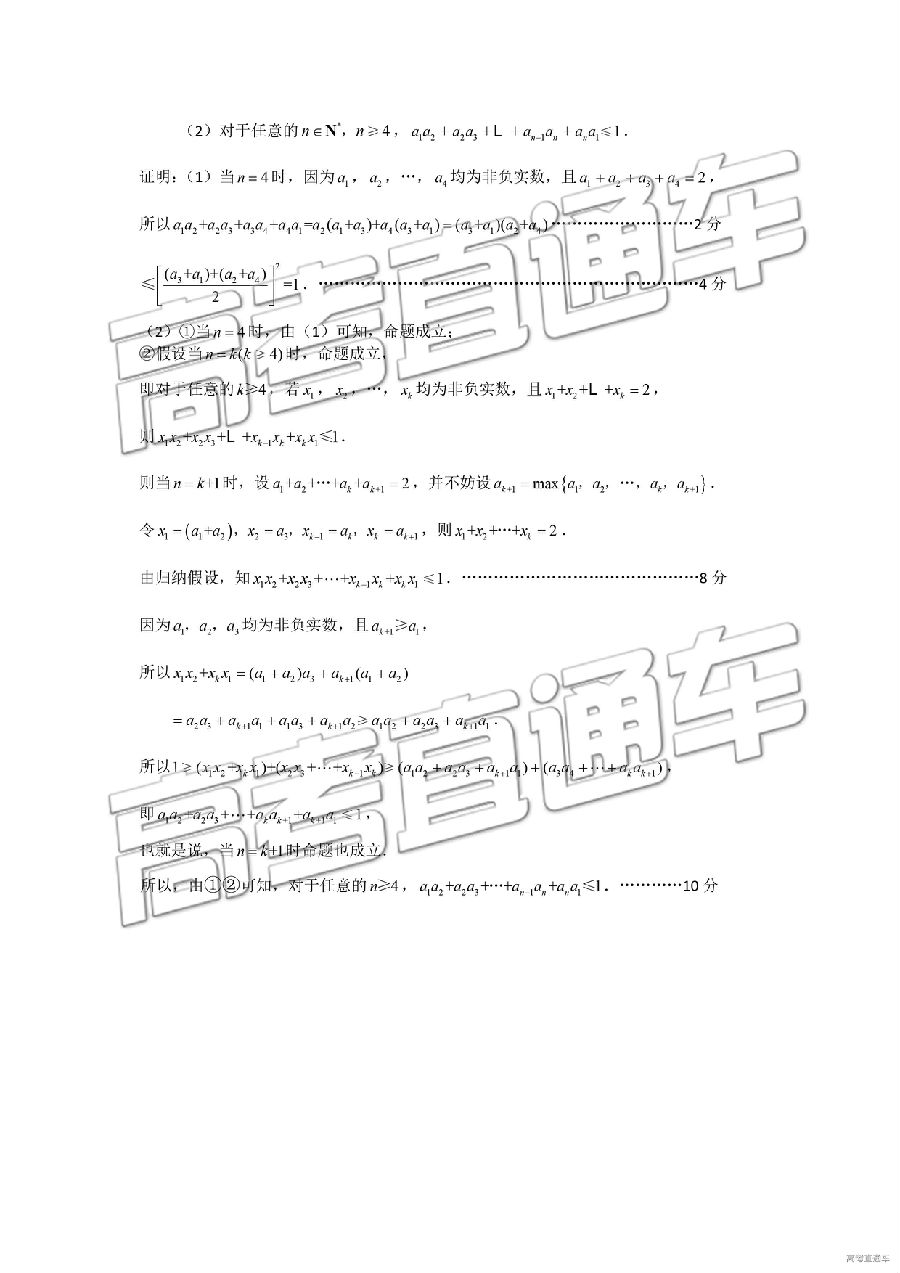 （2）对于任意的n∈N*，n≥4，a₁a₂+a₂a₃+L +aₙ₋₁aₙ+aₙa₁≤1．
证明：（1）当n=4时，因为a₁，a₂，…，a₄均为非负实数，且a₁+a₂+a₃+a₄=2，
所以a₁a₂+a₂a₃+a₃a₄+a₄a₁=a₂(a₁+a₃)+a₄(a₃+a₁)=(a₃+a₁)(a₂+a₄)………………………2分
≤[((a₃+a₁)+(a₂+a₄))/2]²=1．………………………………………………………………4分
（2）①当n=4时，由（1）可知，命题成立；
②假设当n=k(k≥4)时，命题成立，
即对于任意的k≥4，若x₁，x₂，…，xₖ均为非负实数，且x₁+x₂+L +xₖ=2，
则x₁x₂+x₂x₃+L +xₖ₋₁xₖ+xₖx₁≤1．
则当n=k+1时，设a₁+a₂+…+aₖ+aₖ₊₁=2，并不妨设aₖ₊₁=max{a₁，a₂，…，aₖ，aₖ₊₁}．
令x₁=(a₁+a₂)，x₂=a₃，xₖ₋₁=aₖ，xₖ=aₖ₊₁，则x₁+x₂+…+xₖ=2．
由归纳假设，知x₁x₂+x₂x₃+…+xₖ₋₁xₖ+xₖx₁≤1．………………………………………8分
因为a₁，a₂，a₃均为非负实数，且aₖ₊₁≥a₁，
所以x₁x₂+xₖx₁=(a₁+a₂)a₃+aₖ₊₁(a₁+a₂)
=a₂a₃+aₖ₊₁a₁+a₁a₃+aₖ₊₁a₂≥a₁a₂+a₂a₃+aₖ₊₁a₁．
所以1≥(x₁x₂+xₖx₁)+(x₂x₃+…+xₖ₋₁xₖ)≥(a₁a₂+a₂a₃+aₖ₊₁a₁)+(a₃a₄+…+aₖaₖ₊₁)，
即a₁a₂+a₂a₃+…+aₖaₖ₊₁+aₖ₊₁a₁≤1，
也就是说，当n=k+1时命题也成立．
所以，由①②可知，对于任意的n≥4，a₁a₂+a₂a₃+…+aₙ₋₁aₙ+aₙa₁≤1．…………10分
高考直通车
高考直通车
高考直通车